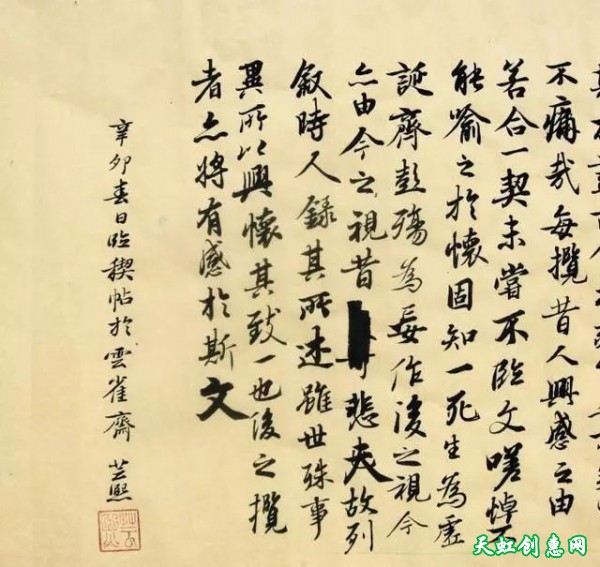 不痛哉每攬昔人興感之由
若合一契未嘗不臨文嗟悼不
能喻之於懷固知一死生為虛
誕齊彭殤為妄作後之視今
亦由今之視昔悲夫故列
敘時人錄其所述雖世殊事
異所以興懷其致一也後之攬
者亦將有感於斯文
辛卯春日臨稧帖於雲雀齋 熙
天虹创惠网